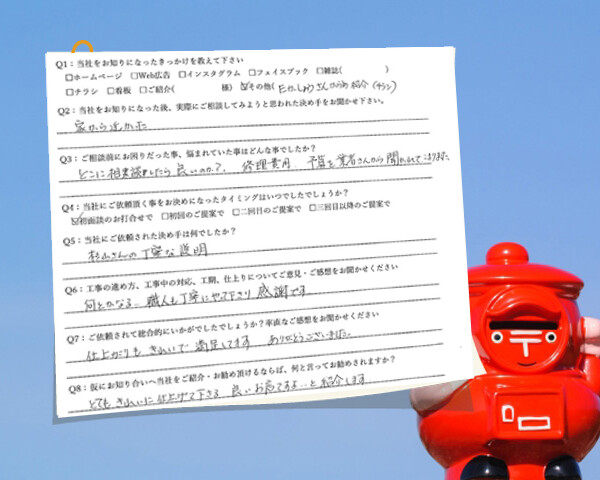 Q1：当社をお知りになったきっかけを教えて下さい
□ホームページ □Web広告 □インスタグラム □フェイスブック □雑誌( )
□チラシ □看板 □ご紹介( 様) ☑その他( さんからの紹介 (チラシ)
Q2：当社をお知りになった後、実際にご相談してみようと思われた決め手をお聞かせ下さい。
家から近かった
Q3：ご相談前にお困りだった事、悩まれていた事はどんな事でしたか？
どこに相談したら良いのか?、修理費用、予算を業者さんから聞かれて
Q4：当社にご依頼頂く事をお決めになったタイミングはいつでしたでしょうか？
☑初面談のお打合せで □初回のご提案で □二回目のご提案で □三回目以降のご提案で
Q5：当社にご依頼された決め手は何でしたか？
杉山さんの丁寧な説明
Q6：工事の進め方、工事中の対応、工期、仕上りについてご意見・ご感想をお聞かせください
何とかなる… 職人も丁寧にやって下さり 感謝です
Q7：ご依頼されて総合的にいかがでしたでしょうか？率直なご感想をお聞かせください
仕上がりも きれいで 満足してます ありがとうございました。
Q8：仮にお知り合いへ当社をご紹介・お勧め頂けるならば、何と言ってお勧めされますか？
とても きれいに 仕上げて下さる 良いお店ですよ…と紹介します